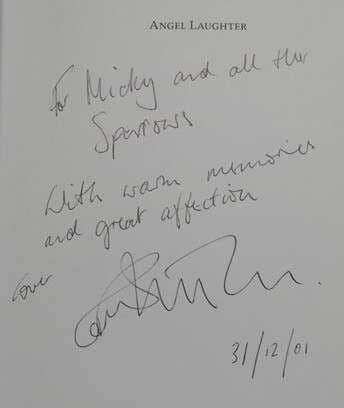 ANGEL LAUGHTER
For Micky and all the
Sparrows
With warm memories
and great affection
Love
31/12/01